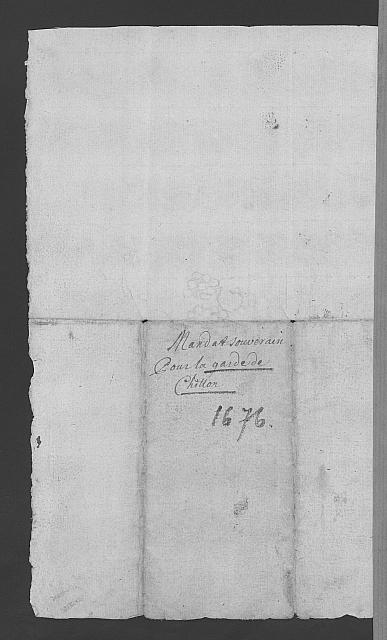 Mandat souverain
Pour la garde de
Chillon
1676.